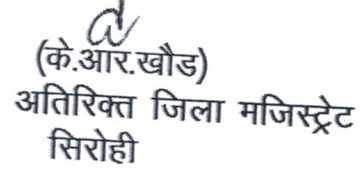 (के.आर.खौड)
अतिरिक्त जिला मजिस्ट्रेट
सिरोही